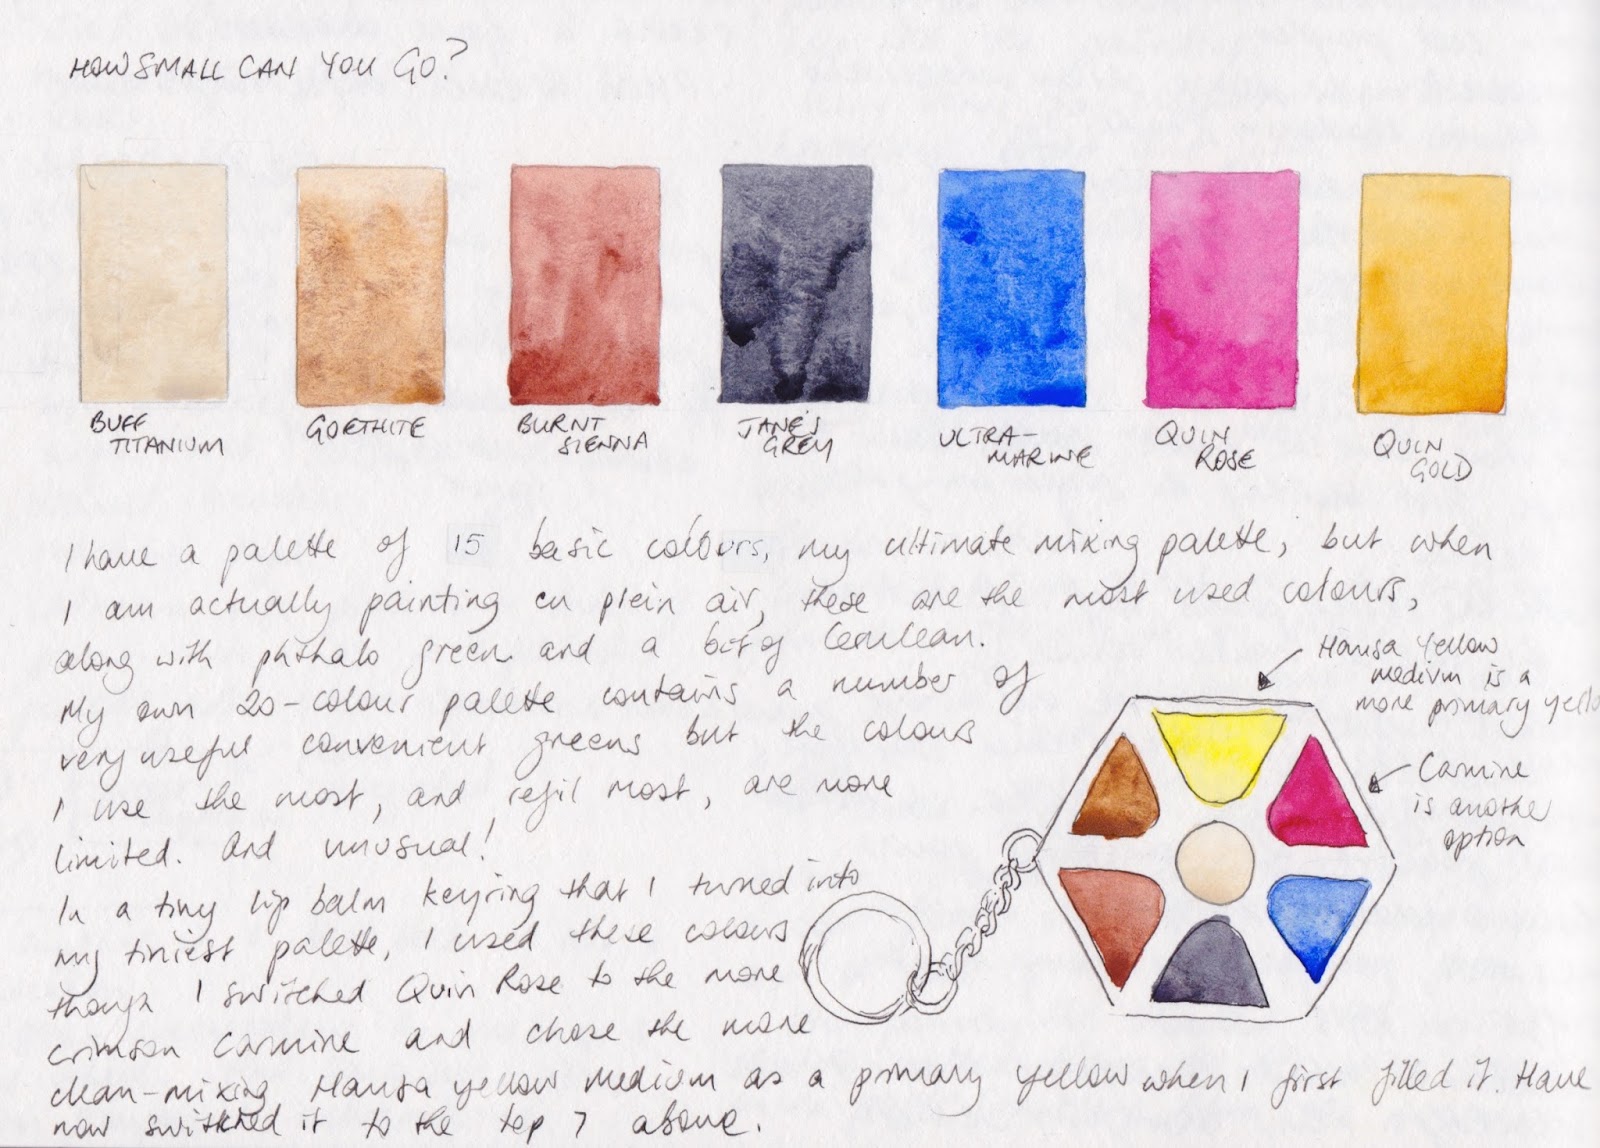 HOW SMALL CAN YOU GO?
BUFF
TITANIUM
GOETHITE
BURNT
SIENNA
JANE'S
GREY
ULTRA-
MARINE
QUIN
ROSE
QUIN
GOLD
I have a palette of 15 basic colours, my ultimate mixing palette, but when
I am actually painting en plein air, these are the most used colours,
along with phthalo green and a bit of Cerulean.
My own 20-colour palette contains a number of
very useful convenient greens but the colours
I use the most, and refil most, are more
limited. And unusual!
In a tiny lip balm keyring that I turned into
my tiniest palette, I used these colours
though I switched Quin Rose to the more
crimson Carmine and chose the more
clean-mixing Hansa yellow medium as a primary yellow when I first filled it. Have
now switched it to the top 7 above.
Hansa Yellow
medium is a
more primary yello
Carmine
is another
option